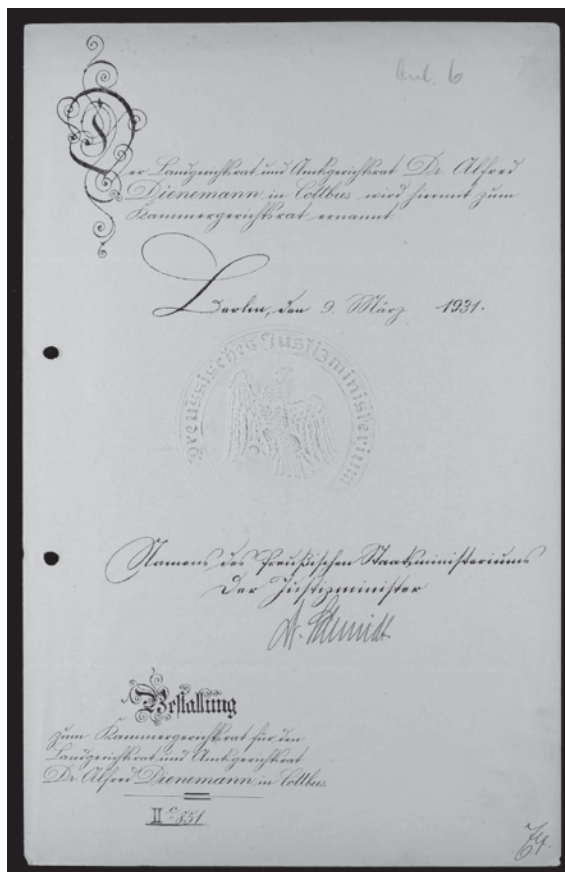 Anl. 6
Der Landgerichtsrat und Amtsgerichtsrat Dr Alfred
Dienemann in Cottbus wird hiermit zum
Kammergerichtsrat ernannt.
Berlin, den 9. März 1931.
Preussisches Justizministerium
Namens des Preußischen Staatsministeriums
Der Justizminister
Dr. Schmidt
Bestallung
zum Kammergerichtsrat für den
Landgerichtsrat und Amtsgerichtsrat
Dr Alfred Dienemann in Cottbus.